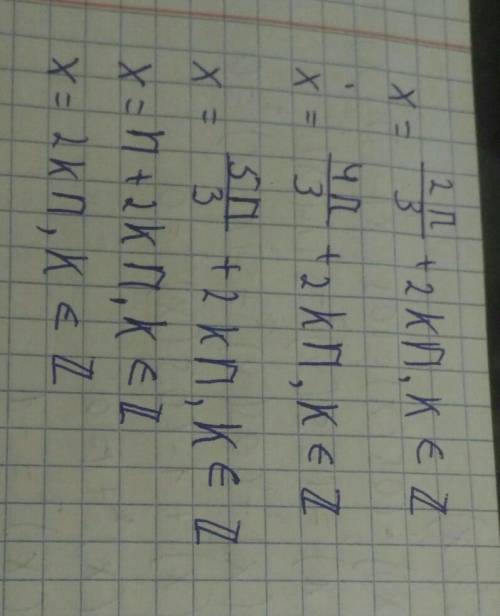 x = 2π/3 + 2kπ, k ∈ ℤ
x = 4π/3 + 2kπ, k ∈ ℤ
x = 5π/3 + 2kπ, k ∈ ℤ
x = π + 2kπ, k ∈ ℤ
x = 2kπ, k ∈ ℤ